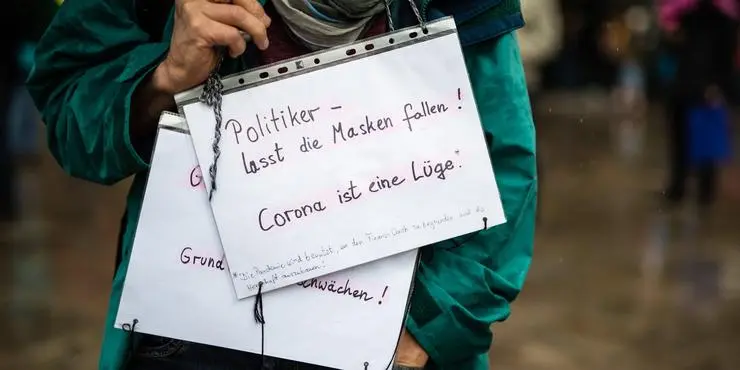 Politiker -
lasst die Masken fallen!
Corona ist eine Lüge!*
* Die Pandemie wird benutzt, um den Finanz-Crash zu begründen und die
Herrschaft auszubauen!
G
Grund
schwächen!